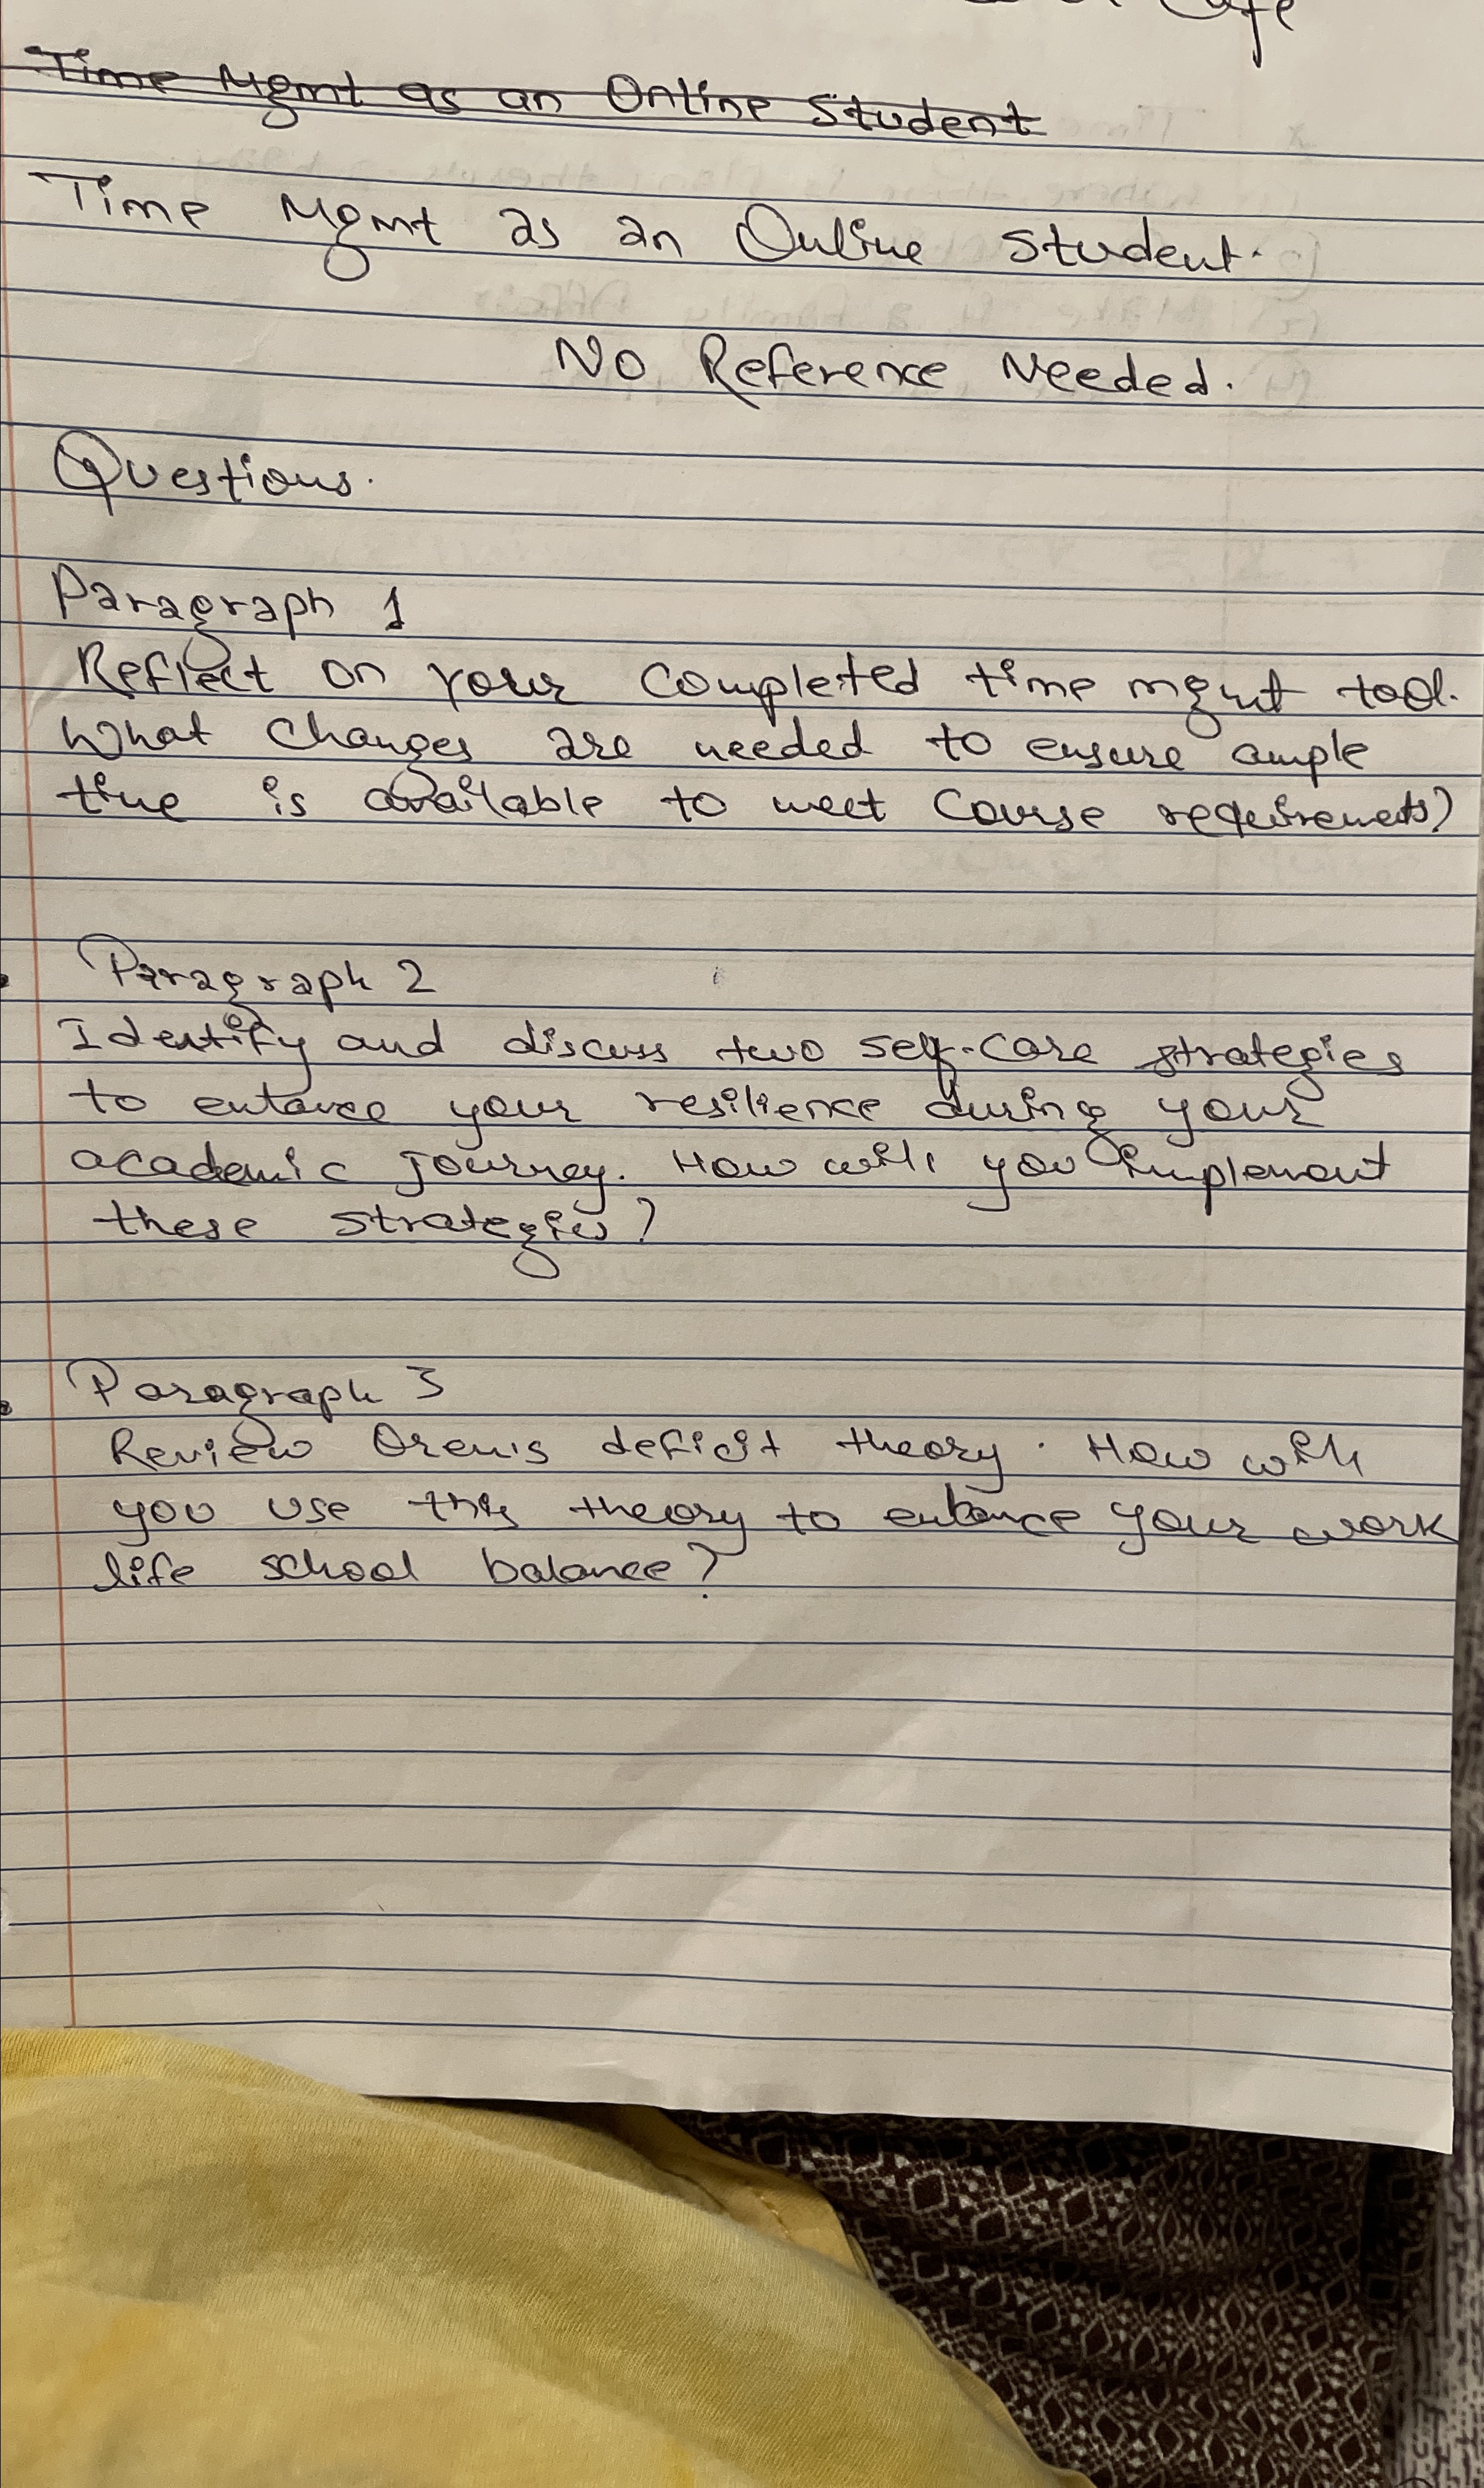 Time Mgmt as an Online Student
Time Mgmt as an Online Student.
No Reference Needed.
Questions.
Paragraph 1
Reflect on your completed time mgmt tool.
What changes are needed to ensure ample
time is available to meet course requirements?
Paragraph 2
Identify and discuss two self-care strategies
to entance your resilience during your
academic journey. How will you implement
these strategies?
Paragraph 3
Review Orem's deficit theory. How will
you use this theory to enhance your work
life school balance?